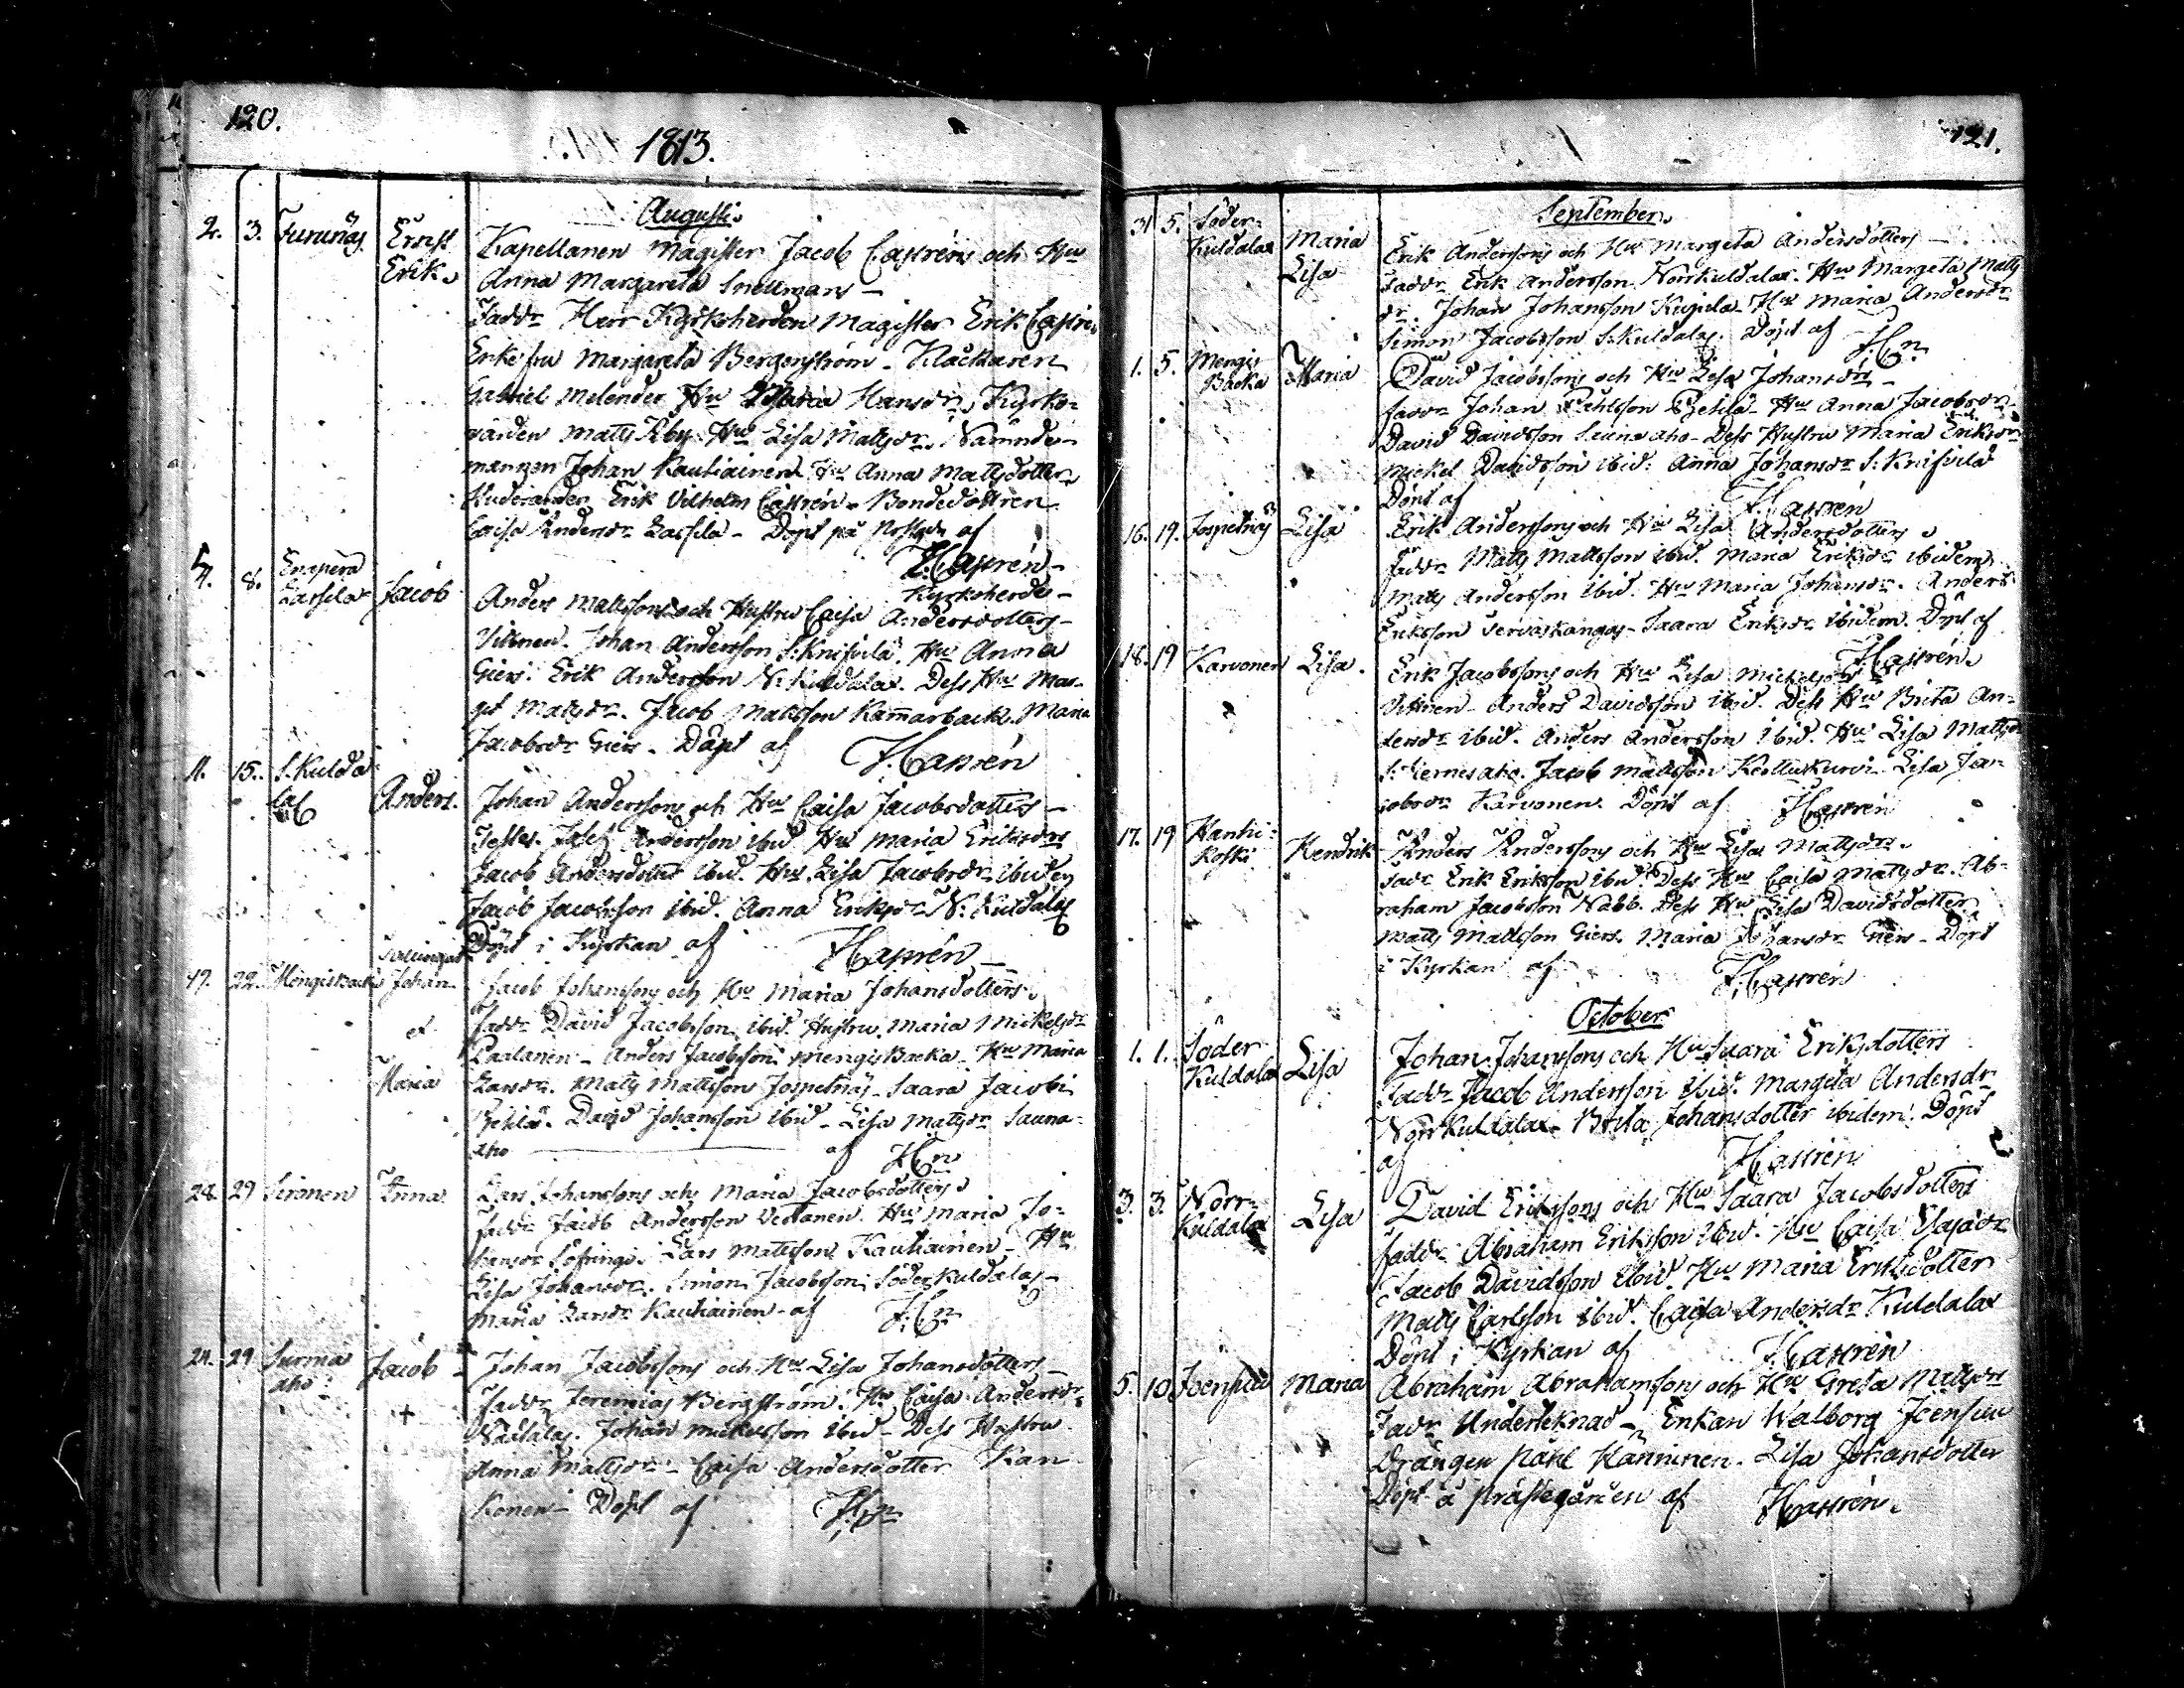 120.
1813.
Augusti
2. 3. Furunäs Ernst Kapellanen Magister Jacob Castréns och Hu
Erik Anna Margareta Snellmans —
Faddr Herr Kyrkoherden Magister Erik Castrén
Enkefru Margareta Bergenström - Klåckaren
Gabriel Melender Hu Maria Hansdr. Kyrko-
värden Matts Hu Lisa Mattsdr. Nämnde-
mannen Johan Kauhiainen Hu Anna Mattsdotter
Erik Vilhelm Castrén - Bondedottren
Caisa Andersdr Lassila - Döpt på af
Castrén
Kyrkoherde
4. 8. Enäperä Lassila Jacob Anders Mattssons och Hustru Caisa Andersdotters
Vittnen. Johan Andersson S: Knifvilä. Hu Anna
Giers. Erik Andersson N: Kuldalax. Dess Hu Mar-
get Mattsdr. Jacob Mattsson Kamarbacka. Maria
Jacobsdr Giers - Döpt af J. Castrén
11. 15. S. Kulda-
lax Anders. Johan Anderssons och Hu Caisa Jacobsdotters —
Testes. Andersson ibid Hu Maria Eriksdr
Jacob ibid. Hu Lisa Jacobsdr ibidem
Jacob Jacobsson ibid. Anna Eriksdr N: Kuldalax
Döpt i Kyrkan af J. Castrén
17. 22. Mengisbacka Johan Jacob Johanssons och Hu Maria Johansdotters
et Faddr David Jacobsson ibid. Hustru Maria Mickelsdr
Paalanen - Anders Jacobsson Mengisbacka - Hu Maria
Maria Larsdr. Matts Mattsson Jospetnäs - Saara Jacobi
David Johansson ibid - Lisa Mattsdr Sauna-
aho af J. Cn
24. 29 Sironen Anna Lars Johanssons och Maria Jacobsdotters
Faddr Jacob Andersson Vestanen. Hu Maria Jo-
hansdr Löfring. Lars Mattsson Kauhiainen - Hu
Lisa Johansdr. Simon Jacobsson Söderkuldalax -
Maria Larsdr Kauhiainen - af J. Cn
21. 29 Surma-
aho Jacob Johan Jacobssons och Hu Lisa Johansdotters
+ Faddr Jeremias Bergström. Hu Caisa Andersdr
Johan Mickelsson ibid - Dess Hustru
Anna Mattsdr - Caisa Andersdotter Kan-
konen - Döpt af J. Cn
121.
September
31 5. Söder-
Kuldalax Maria Erik Anderssons och Hu Margeta Andersdotters —
Lisa Faddr Erik Andersson Norrkuldalax. Hu Margeta Matts
dr. Johan Johansson Kujala - Hu Maria Andersdr
Simon Jacobsson S: Kuldalax. Döpt af J. Cn
1. 5. Mengis
Backa Maria David Jacobssons och Hu Lisa Johansdrs —
Faddr Johan Hu Anna Jacobsdr
David Davidsson Sauna aho - Dess Hustru Maria Eriksdr
Mickel Davidsson ibid. Anna Johansdr S: Knifvilä
Döpt af J. Castrén
16. 19. Jospetnäs Lisa Erik Anderssons och Hu Lisa Andersdotters
Faddr Matts Mattsson ibid. Maria Eriksdr ibidem
Matts Andersson ibid. Hu Maria Johansdr. Anders
Eriksson Servaskangas - Saara Eriksdr ibidem. Döpt af
J. Castrén
18. 19 Karvonen Lisa. Erik Jacobssons och Hu Lisa Michelsdrs
Vittnen - Anders Davidsson ibid. Dess Hu Brita An-
dersdr ibid. Anders Andersson ibid. Hu Lisa Mattsdr
Jacob Mattsson Lisa Ja-
cobsdr Karvonen. Döpt af J. Castrén
17. 19 Hanhi-
koski Hendrik Anders Anderssons och Hu Lisa Mattsdrs.
Fadr Erik Eriksson ibid. Dess Hu Caisa Mattsdr. Ab-
raham Jacobsson Nabb. Dess Hu Lisa Davidsdotter
Matts Mattsson Giers. Maria Johansdr Giers - Döpt
i Kyrkan af J. Castrén
October
1. 1. Söder
Kuldalax Lisa Johan Johanssons och Hu Saara Eriksdotters
Faddr Jacob Andersson ibid. Margeta Andersdr
Norrkuldalax - Brita Johansdotter ibidem. Döpt
af J. Castrén
3. 3. Norr-
kuldalax Lisa David Erikssons och Hu Saara Jacobsdotters
Faddr Abraham Eriksson ibid. Hu Caisa Esajadr
Jacob Davidsson ibid. Hu Maria Eriksdotter
Matts Carlsson ibid. Caisa Andersdr Kuldalax
Döpt i Kyrkan af J. Castrén
5. 10 Joensuu Maria Abraham Abrahamssons och Hu Greta Mattsdrs
Fadr Underteknad - Enkan Walborg Joensuu
Drängen Påhl Känninen. Lisa Johansdotter
Döpt å prästegården af J. Castrén.